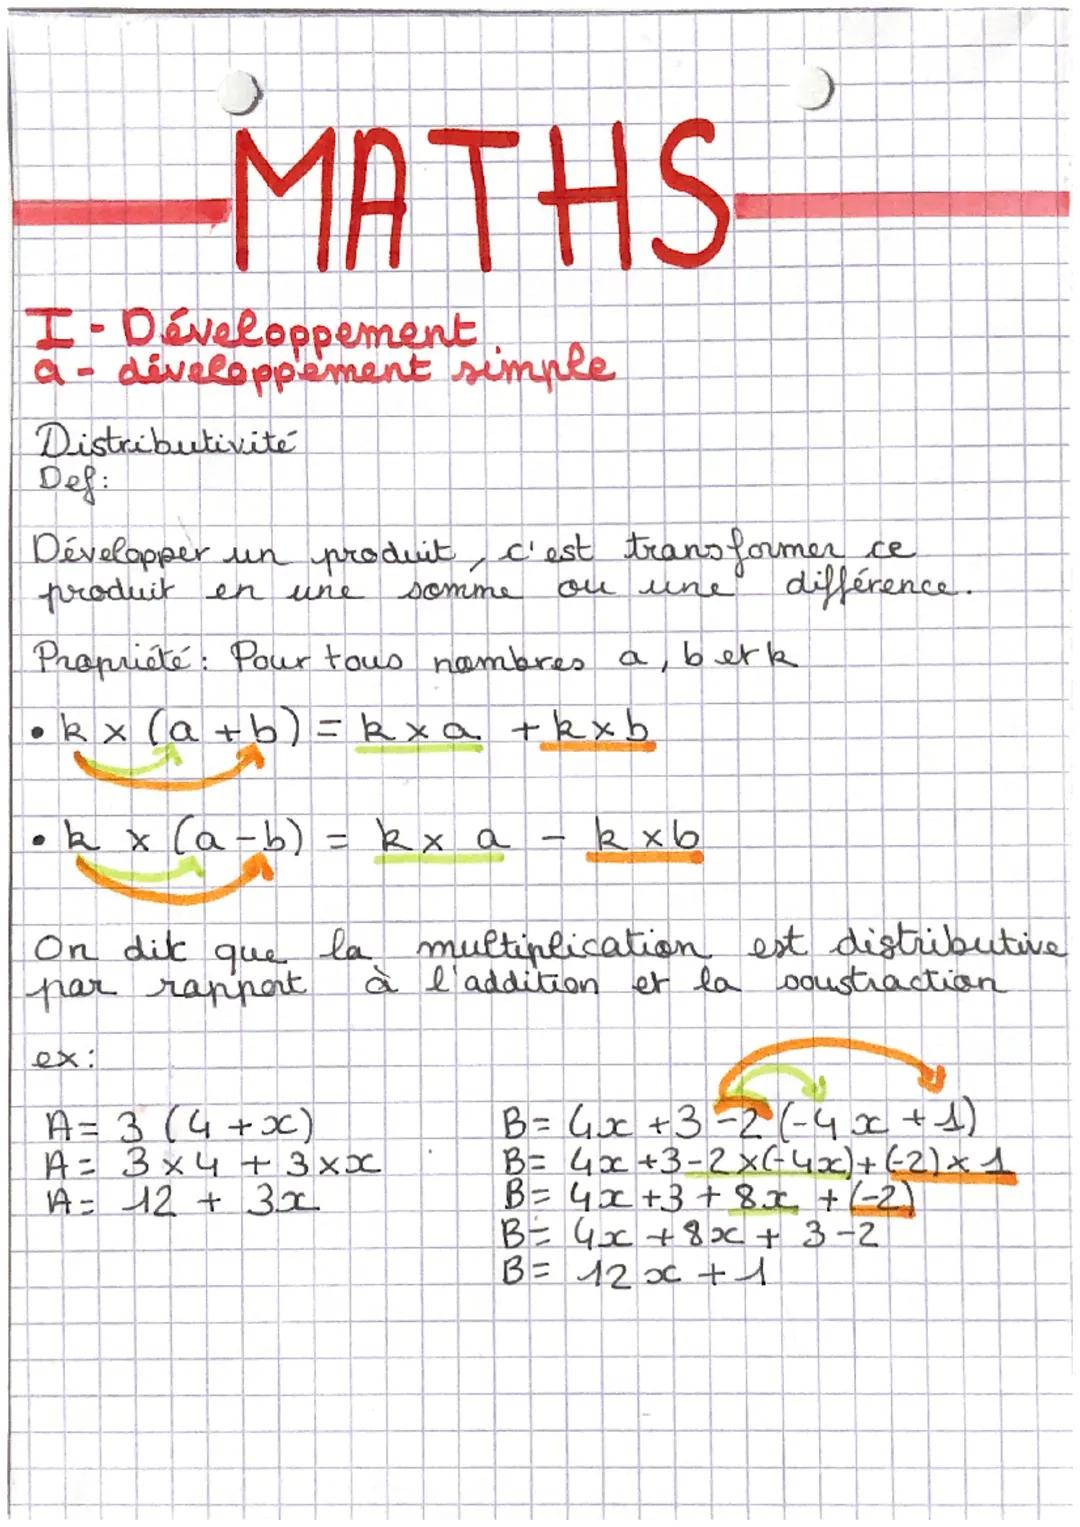 MATHS
I - Développement
a - développement simple
Distributivité
Def:
Développer un produit, c'est transformer ce
produit en une somme ou une différence.
Propriété: Pour tous nombres a, b et k
• k × (a + b) = k × a + k × b
• k × (a - b) = k × a - k × b
On dit que la multiplication est distributive
par rapport à l'addition et la soustraction
ex:
A = 3 (4 + x)
A = 3 × 4 + 3 × x
A = 12 + 3x
B = 4x + 3 - 2 (-4x + 1)
B = 4x + 3 - 2 × (-4x) + (-2) × 1
B = 4x + 3 + 8x + (-2)
B = 4x + 8x + 3 - 2
B = 12x + 1